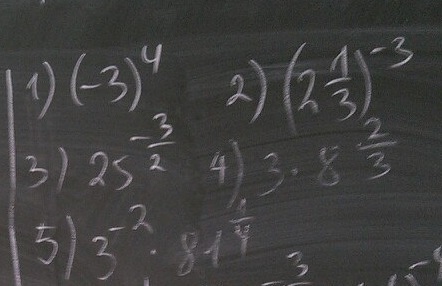 1) (-3)^4 2) (2 1/3)^-3
3) 25^-3/2 4) 3 · 8^2/3
5) 3^-2 · 81^1/4